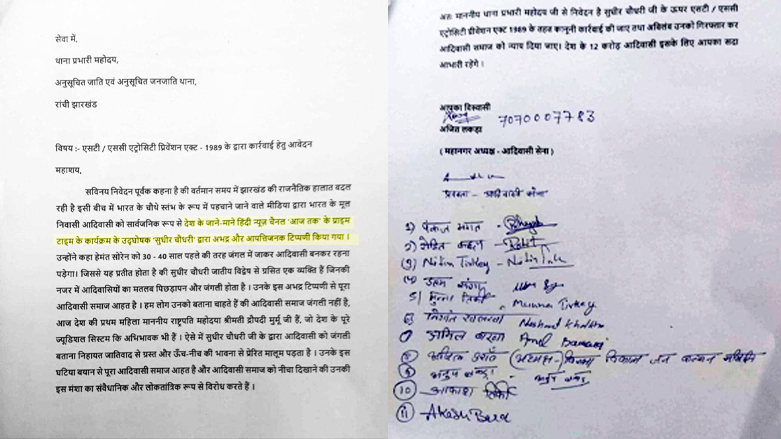 सेवा में,
थाना प्रभारी महोदय,
अनुसूचित जाति एवं अनुसूचित जनजाति थाना,
रांची झारखंड
विषय :- एसटी / एससी एट्रोसिटी प्रिवेंशन एक्ट - 1989 के द्वारा कार्रवाई हेतु आवेदन
महाशय,
सविनय निवेदन पूर्वक कहना है की वर्तमान समय में झारखंड की राजनैतिक हालात बदल
रही है इसी बीच में भारत के चौथे स्तंभ के रूप में पहचाने जाने वाले मीडिया द्वारा भारत के मूल
निवासी आदिवासी को सार्वजनिक रूप से देश के जाने-माने हिंदी न्यूज़ चैनल 'आज तक' के प्राइम
टाइम के कार्यक्रम के उद्घोषक 'सुधीर चौधरी' द्वारा अभद्र और आपत्तिजनक टिप्पणी किया गया ।
उन्होंने कहा हेमंत सोरेन को 30 - 40 साल पहले की तरह जंगल में जाकर आदिवासी बनकर रहना
पड़ेगा। जिससे यह प्रतीत होता है की सुधीर चौधरी जातीय विद्वेष से ग्रसित एक व्यक्ति हैं जिनकी
नजर में आदिवासियों का मतलब पिछड़ापन और जंगली होता है । उनके इस अभद्र टिप्पणी से पूरा
आदिवासी समाज आहत है । हम लोग उनको बताना चाहते हैं की आदिवासी समाज जंगली नहीं है,
आज देश की प्रथम महिला माननीय राष्ट्रपति महोदया श्रीमती द्रौपदी मुर्मू जी हैं, जो देश के पूरे
ज्यूडिशल सिस्टम कि अभिभावक भी हैं । ऐसे में सुधीर चौधरी जी के द्वारा आदिवासी को जंगली
बताना निहायत जातिवाद से ग्रस्त और ऊँच-नीच की भावना से प्रेरित मालूम पड़ता है । उनके इस
घटिया बयान से पूरा आदिवासी समाज आहत है और आदिवासी समाज को नीचा दिखाने की उनकी
इस मंशा का संवैधानिक और लोकतांत्रिक रूप से विरोध करते हैं ।
अतः माननीय थाना प्रभारी महोदय जी से निवेदन है सुधीर चौधरी जी के ऊपर एसटी / एससी
एट्रोसिटी प्रिवेंशन एक्ट 1989 के तहत कानूनी कार्रवाई की जाए तथा अविलंब उनको गिरफ्तार कर
आदिवासी समाज को न्याय दिया जाए। देश के 12 करोड़ आदिवासी इसके लिए आपका सदा
आभारी रहेंगे ।
आपका विश्वासी
7070007783
अजित लकड़ा
( महानगर अध्यक्ष - आदिवासी सेना )
प्रवक्ता - आदिवासी सेना
1)
2) Rohit
3) Nitin Tirkey -
4)
5) मुन्ना तिर्की - Munna Tirkey
6) निशांत खलखो Nishant Khalkho
7)
8)
9)
10) आकाश तिर्की
11) Akash Bara